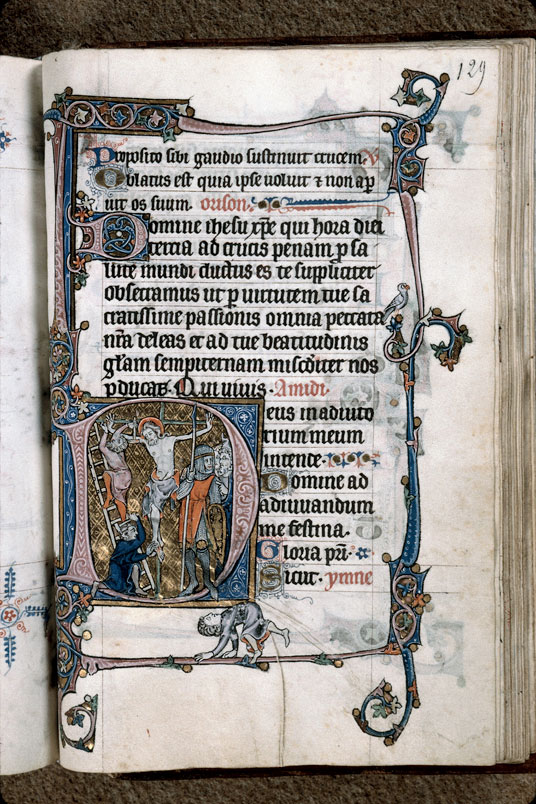 129
Proposito sibi gaudio sustinuit crucem. V
Oblatus est quia ipse uoluit ⁊ non ap
uit os suum. orison.
Domine ihesu xpe qui hora diei
tercia ad crucis penam p sa
lute mundi ductus es te suppliciter
obsecramus ut p uirtutem tue sa
cratissime passionis omnia peccata
nra deleas et ad tue beatitudinis
gliam sempiternam misc̄ditr nos
pducas. Qui uiuis. A midi
Deus in adiuto
rium meum
intende.
Domine ad
adiuuandum
me festina.
Gloria pri.
Sicut. ymne